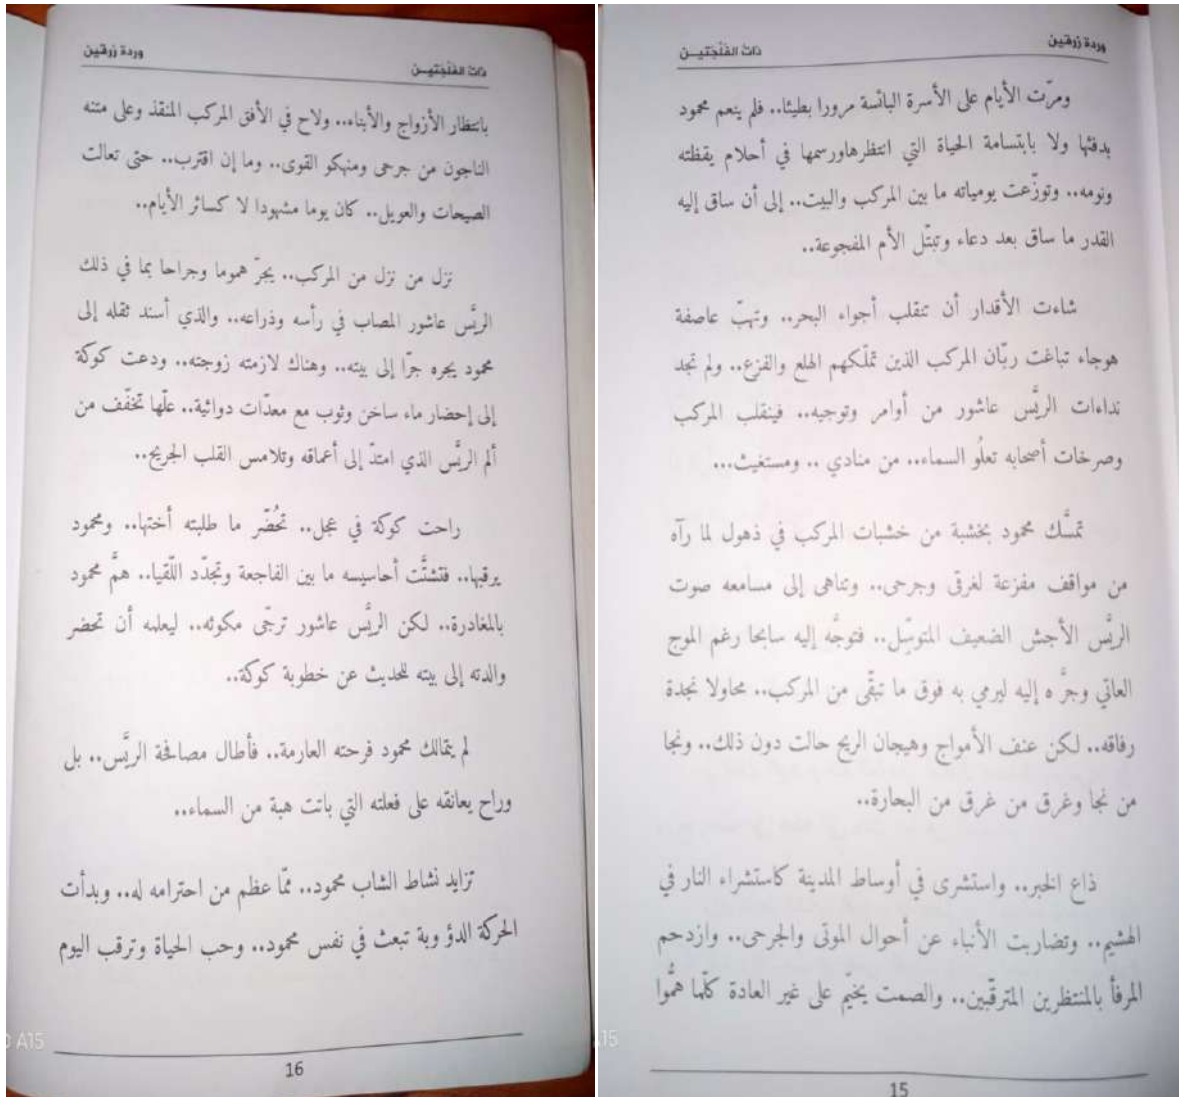 وردة زرقين
ذات الفَلْجَتيــن
ومرّت الأيام على الأسرة البائسة مرورا بطيئا.. فلم ينعم محمود
بدفئها ولا بابتسامة الحياة التي انتظرهاورسمها في أحلام يقظته
ونومه.. وتوزّعت يومياته ما بين المركب والبيت.. إلى أن ساق إليه
القدر ما ساق بعد دعاء وتبتّل الأم المفجوعة..
شاءت الأقدار أن تنقلب أجواء البحر.. وتهبّ عاصفة
هوجاء تباغت ربّان المركب الذين تملّكهم الهلع والفزع.. ولم تجد
نداءات الريَّس عاشور من أوامر وتوجيه.. فينقلب المركب
وصرخات أصحابه تعلُو السماء.. من منادي .. ومستغيث...
تمسَّك محمود بخشبة من خشبات المركب في ذهول لما رآه
من مواقف مفزعة لغرقى وجرحى.. وتناهى إلى مسامعه صوت
الريَّس الأجش الضعيف المتوسِّل.. فتوجَّه إليه سابحا رغم الموج
العاتي وجرَّ ه إليه ليرمي به فوق ما تبقَّى من المركب.. محاولا نجدة
رفاقه.. لكن عنف الأمواج وهيجان الريح حالت دون ذلك.. ونجا
من نجا وغرق من غرق من البحارة..
ذاع الخبر.. واستشرى في أوساط المدينة كاستشراء النار في
الهشيم.. وتضاربت الأنباء عن أحوال الموتى والجرحى.. وازدحم
المرفأ بالمنتظرين المترقّبين.. والصمت يخيّم على غير العادة كلّما همُّوا
15
وردة زرقين
ذات الفَلْجَتيــن
بانتظار الأزواج والأبناء.. ولاح في الأفق المركب المنقذ وعلى متنه
الناجون من جرحى ومنهكو القوى.. وما إن اقترب.. حتى تعالت
الصيحات والعويل.. كان يوما مشهودا لا كسائر الأيام..
نزل من نزل من المركب.. يجرّ هموما وجراحا بما في ذلك
الريَّس عاشور المصاب في رأسه وذراعه.. والذي أسند ثقله إلى
محمود يجره جرّا إلى بيته.. وهناك لازمته زوجته.. ودعت كوكة
إلى إحضار ماء ساخن وثوب مع معدّات دوائية.. علّها تخفّف من
ألم الريَّس الذي امتدّ إلى أعماقه وتلامس القلب الجريح..
راحت كوكة في عجل.. تحُضّر ما طلبته أختها.. ومحمود
يرقبها.. فتشتَّت أحاسيسه ما بين الفاجعة وتجدّد اللّقيا.. همَّ محمود
بالمغادرة.. لكن الريَّس عاشور ترجّى مكوثه.. ليعلمه أن تحضر
والدته إلى بيته للحديث عن خطوبة كوكة..
لم يتمالك محمود فرحته العارمة.. فأطال مصافحة الريَّس.. بل
وراح يعانقه على فعلته التي باتت هبة من السماء..
تزايد نشاط الشاب محمود.. ممّا عظم من احترامه له.. وبدأت
الحركة الدؤ وبة تبعث في نفس محمود.. وحب الحياة وترقب اليوم
16
A15